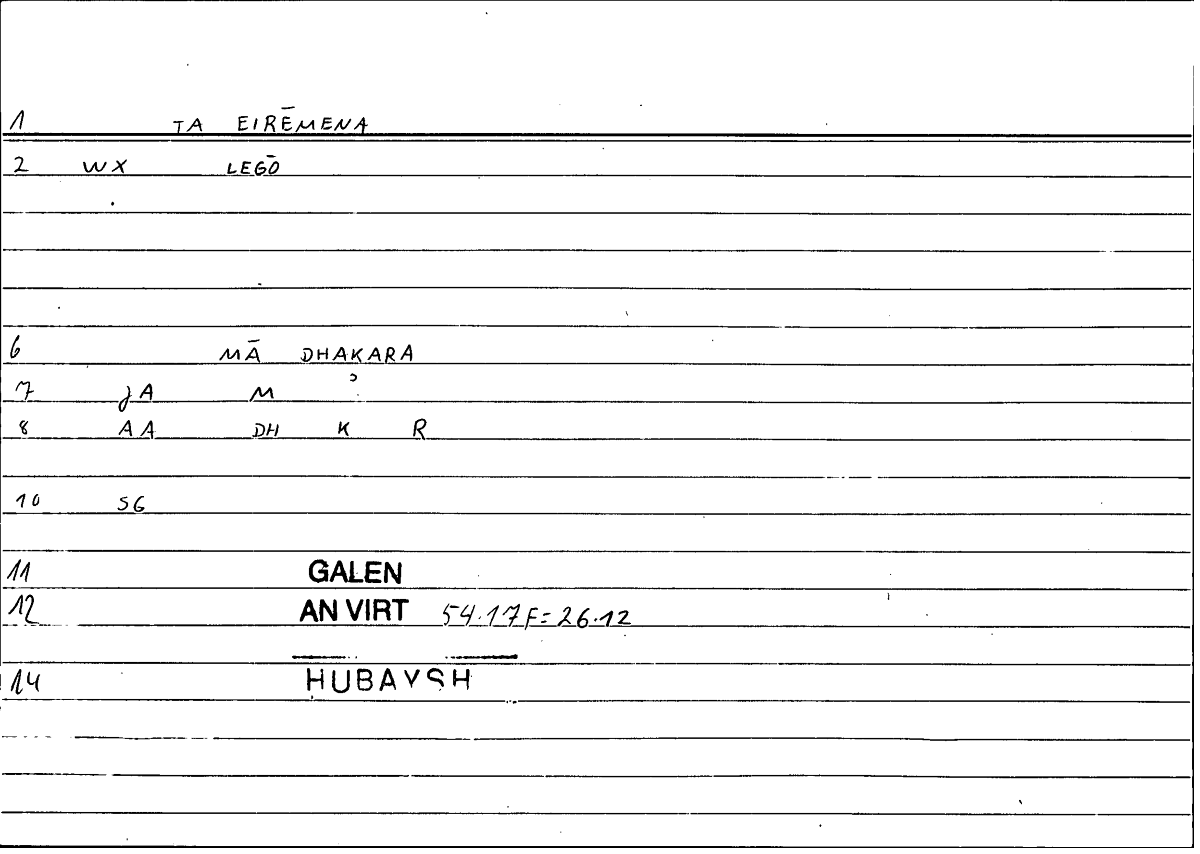 1 TA EIRĒMENA
2 WX LEGŌ
6 MĀ DHAKARA
7 JA M ʾ
8 AA DH K R
10 SG
11 GALEN
12 AN VIRT 54.17F=26.12
14 HUBAYSH